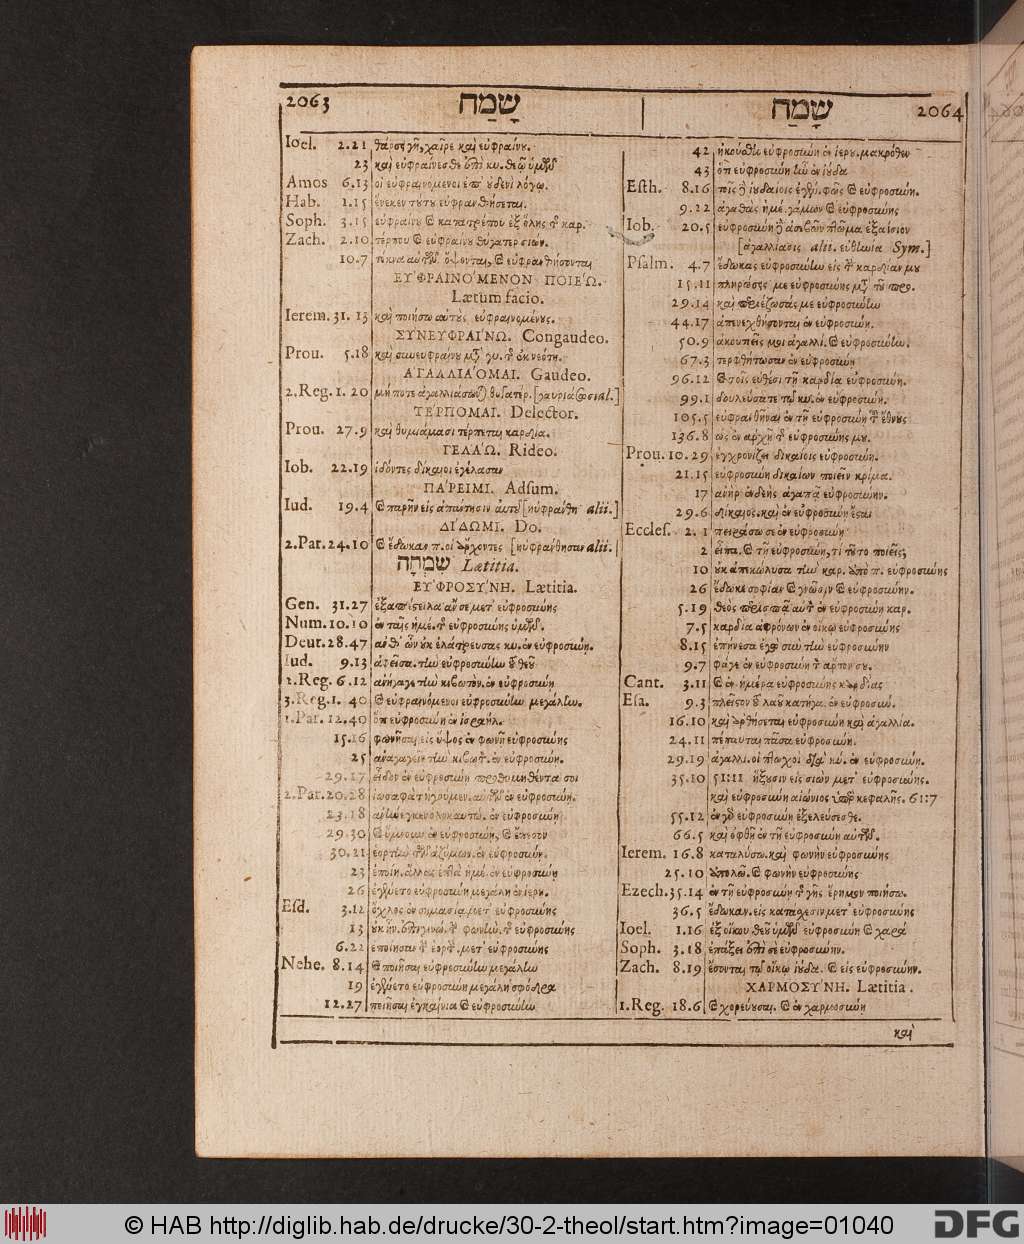 2063 שָׂמַח
Ioel. 2.21 θάρσει γῆ, χαῖρε καὶ εὐφραίνου.
23 καὶ εὐφραίνεσθε ἐπὶ κυ. θεῷ ὑμῶν
Amos 6.13 οἱ εὐφραινόμενοι ἐπ' οὐδενὶ λόγῳ.
Hab. 1.15 ἕνεκεν τούτου εὐφρανθήσεται.
Soph. 3.15 εὐφραίνου καὶ κατατρέπου ἐξ ὅλης τῆς καρ.
Zach. 2.10 τέρπου καὶ εὐφραίνου θύγατερ σιών.
10.7 τέκνα αὐτῶν ὄψονται, καὶ εὐφρανθήσονται
ΕΥ'ΦΡΑΙΝΟ'ΜΕΝΟΝ ΠΟΙΕ'Ω.
Lætum facio.
Ierem. 31. 13 καὶ ποιήσω αὐτοὺς εὐφραινομένους.
ΣΥΝΕΥΦΡΑΙ'ΝΩ. Congaudeo.
Prou. 5.18 καὶ συνευφραίνου μετὰ γυ. τῆς ἐκ νεότη.
Α'ΓΑΛΛΙΑ'ΟΜΑΙ. Gaudeo.
2.Reg. 1. 20 μήποτε ἀγαλλιάσωνται θυγατέρ. [γαυριά al.]
ΤΕ'ΡΠΟΜΑΙ. Delector.
Prou. 27.9 καὶ θυμιάμασι τέρπεται καρδία.
ΓΕΛΑ'Ω. Rideo.
Iob. 22.19 ἰδόντες δίκαιοι ἐγέλασαν
ΠΑ'ΡΕΙΜΙ. Adsum.
Iud. 19.4 καὶ παρῆν εἰς ἀπάντησιν αὐτοῦ [ηὐφράνθη alii.]
ΔΙ'ΔΩΜΙ. Do.
2.Par. 24.10 καὶ ἔδωκαν π. οἱ ἄρχοντες [ηὐφράνθησαν alii.]
שִׂמְחָה Lætitia.
ΕΥ'ΦΡΟΣΥ'ΝΗ. Lætitia.
Gen. 31.27 ἐξαπέστειλα ἄν σε μετ' εὐφροσύνης
Num. 10.10 ἐν ταῖς ἡμέ. τῆς εὐφροσύνης ὑμῶν.
Deut. 28.47 ἀνθ' ὧν οὐκ ἐλάτρευσας κυ. ἐν εὐφροσύνῃ.
Iud. 9.13 ἀφεῖσα. τὴν εὐφροσύνην τοῦ θεοῦ
2.Reg. 6.12 ἀνήγαγε τὴν κιβωτὸν. ἐν εὐφροσύνῃ
3.Reg. 1. 40 καὶ εὐφραινόμενοι εὐφροσύνην μεγάλην.
1.Par. 12.40 ὅτι εὐφροσύνη ἐν ἰσραήλ.
15.16 φωνῆσαι εἰς ὕψος ἐν φωνῇ εὐφροσύνης
25 ἀναγαγεῖν τὴν κιβωτ. ἐν εὐφροσύνῃ.
29.17 εἶδον ἐν εὐφροσύνῃ προθυμηθέντα σοι
2.Par. 20.28 ἰωσαφὰτ ἡγούμεν. αὐτῶν ἐν εὐφροσύνῃ.
23.18 ἐν εὐφροσύνῃ
29.30 καὶ ὕμνουν ἐν εὐφροσύνῃ, καὶ ἔπεσον
30.21 ἑορτὴν τῶν ἀζύμων. ἐν εὐφροσύνῃ.
23 ἐποίη. ἄλλας ἑπτὰ ἡμέ. ἐν εὐφροσύνῃ
26 ἐγένετο εὐφροσύνη μεγάλη ἐν ἱερη.
Esd. 3.12 ὄχλος ἐν σημασίᾳ μετ' εὐφροσύνης
13 οὐκ ἦν. ἐπιγινω. τὴν φωνὴν. τῆς εὐφροσύνης
6.22 ἐποίησαν τὴν ἑορτ. μετ' εὐφροσύνης
Nehe. 8.14 καὶ ποιῆσαι εὐφροσύνην μεγάλην
19 ἐγένετο εὐφροσύνη μεγάλη σφόδρα
12.27 ποιῆσαι ἐγκαίνια καὶ εὐφροσύνην
שָׂמַח 2064
42 ἠκούσθη εὐφροσύνη ἐν ἱερου. μακρόθεν
43 ὅτι εὐφροσύνη ἦν ἐν ἰούδα
Esth. 8.16 τοῖς δὲ ἰουδαίοις ἐγένε. φῶς καὶ εὐφροσύνη.
9.22 ἀγαθὰς ἡμέ. γάμων καὶ εὐφροσύνης
Iob. 20.5 εὐφροσύνη δὲ ἀσεβῶν πτῶμα ἐξαίσιον
[ἀγαλλίασις alii. εὐθυμία Sym.]
Psalm. 4.7 ἔδωκας εὐφροσύνην εἰς τὴν καρδίαν μου
15.11 πληρώσεις με εὐφροσύνης μετὰ τοῦ προ.
29.14 καὶ περιέζωσάς με εὐφροσύνην
44.17 ἀπενεχθήσονται ἐν εὐφροσύνῃ.
50.9 ἀκουτιεῖς μοι ἀγαλλί. καὶ εὐφροσύνην.
67.3 τερφθήτωσαν ἐν εὐφροσύνῃ
96.12 καὶ τοῖς εὐθέσι τῇ καρδίᾳ εὐφροσύνη.
99.1 δουλεύσατε τῷ κυ. ἐν εὐφροσύνῃ.
105.5 εὐφρανθῆναι ἐν τῇ εὐφροσύνῃ τοῦ ἔθνους
136.8 ὡς ἐν ἀρχῇ τῆς εὐφροσύνης μου.
Prou. 10.29 ἐγχρονίζει δικαίοις εὐφροσύνη.
21.15 εὐφροσύνη δικαίων ποιεῖν κρίμα.
17 ἀνὴρ ἐνδεὴς ἀγαπᾷ εὐφροσύνην.
29.6 δίκαιος. καὶ ἐν εὐφροσύνῃ ἔσται
Eccles. 2. 1 πειράσω σε ἐν εὐφροσύνῃ
2 εἶπα. καὶ τῇ εὐφροσύνῃ, τί τοῦτο ποιεῖς;
10 οὐκ ἀπεκώλυσα τὴν καρ. ἀπὸ π. εὐφροσύνης
26 ἔδωκε σοφίαν καὶ γνῶσιν καὶ εὐφροσύνην.
5.19 θεὸς περισπᾷ αὐτὸν ἐν εὐφροσύνῃ καρ.
7.5 καρδία ἀφρόνων ἐν οἴκῳ εὐφροσύνης
8.15 ἐπῄνεσα ἐγὼ σὺν τὴν εὐφροσύνην
9.7 φάγε ἐν εὐφροσύνῃ τὸν ἄρτον σου.
Cant. 3.11 καὶ ἐν ἡμέρᾳ εὐφροσύνης καρδίας
Esa. 9.3 πλεῖστον τοῦ λαοῦ κατήγα. ἐν εὐφροσύ.
16.10 καὶ ἀρθήσεται εὐφροσύνη καὶ ἀγαλλία.
24.11 πέπαυται πᾶσα εὐφροσύνη.
29.19 ἀγαλλι. οἱ πτωχοὶ διὰ κύ. ἐν εὐφροσύνῃ.
35.10 51:11 ἥξουσιν εἰς σιὼν μετ' εὐφροσύνης.
καὶ εὐφροσύνη αἰώνιος ὑπὲρ κεφαλῆς. 61:7
55.12 ἐν γὰρ εὐφροσύνῃ ἐξελεύσεσθε.
66.5 καὶ ὀφθῇ ἐν τῇ εὐφροσύνῃ αὐτῶν.
Ierem. 16.8 καταλύσω. καὶ φωνὴν εὐφροσύνης
25.10 ἀπολῶ. καὶ φωνὴν εὐφροσύνης
Ezech. 35.14 ἐν τῇ εὐφροσύνῃ τῆς γῆς ἔρημον ποιήσω.
36.5 ἔδωκαν. εἰς κατάσχεσιν μετ' εὐφροσύνης
Ioel. 1.16 ἐξ οἴκου θεοῦ ὑμῶν εὐφροσύνη καὶ χαρά
Soph. 3.18 ἐπάξει ἐπὶ σὲ εὐφροσύνην.
Zach. 8.19 ἔσονται τῷ οἴκῳ ἰούδα. καὶ εἰς εὐφροσύνην.
ΧΑΡΜΟΣΥ'ΝΗ. Lætitia.
1.Reg. 18.6 καὶ χορεύουσαι. καὶ ἐν χαρμοσύνῃ
καὶ
© HAB http://diglib.hab.de/drucke/30-2-theol/start.htm?image=01040
DFG